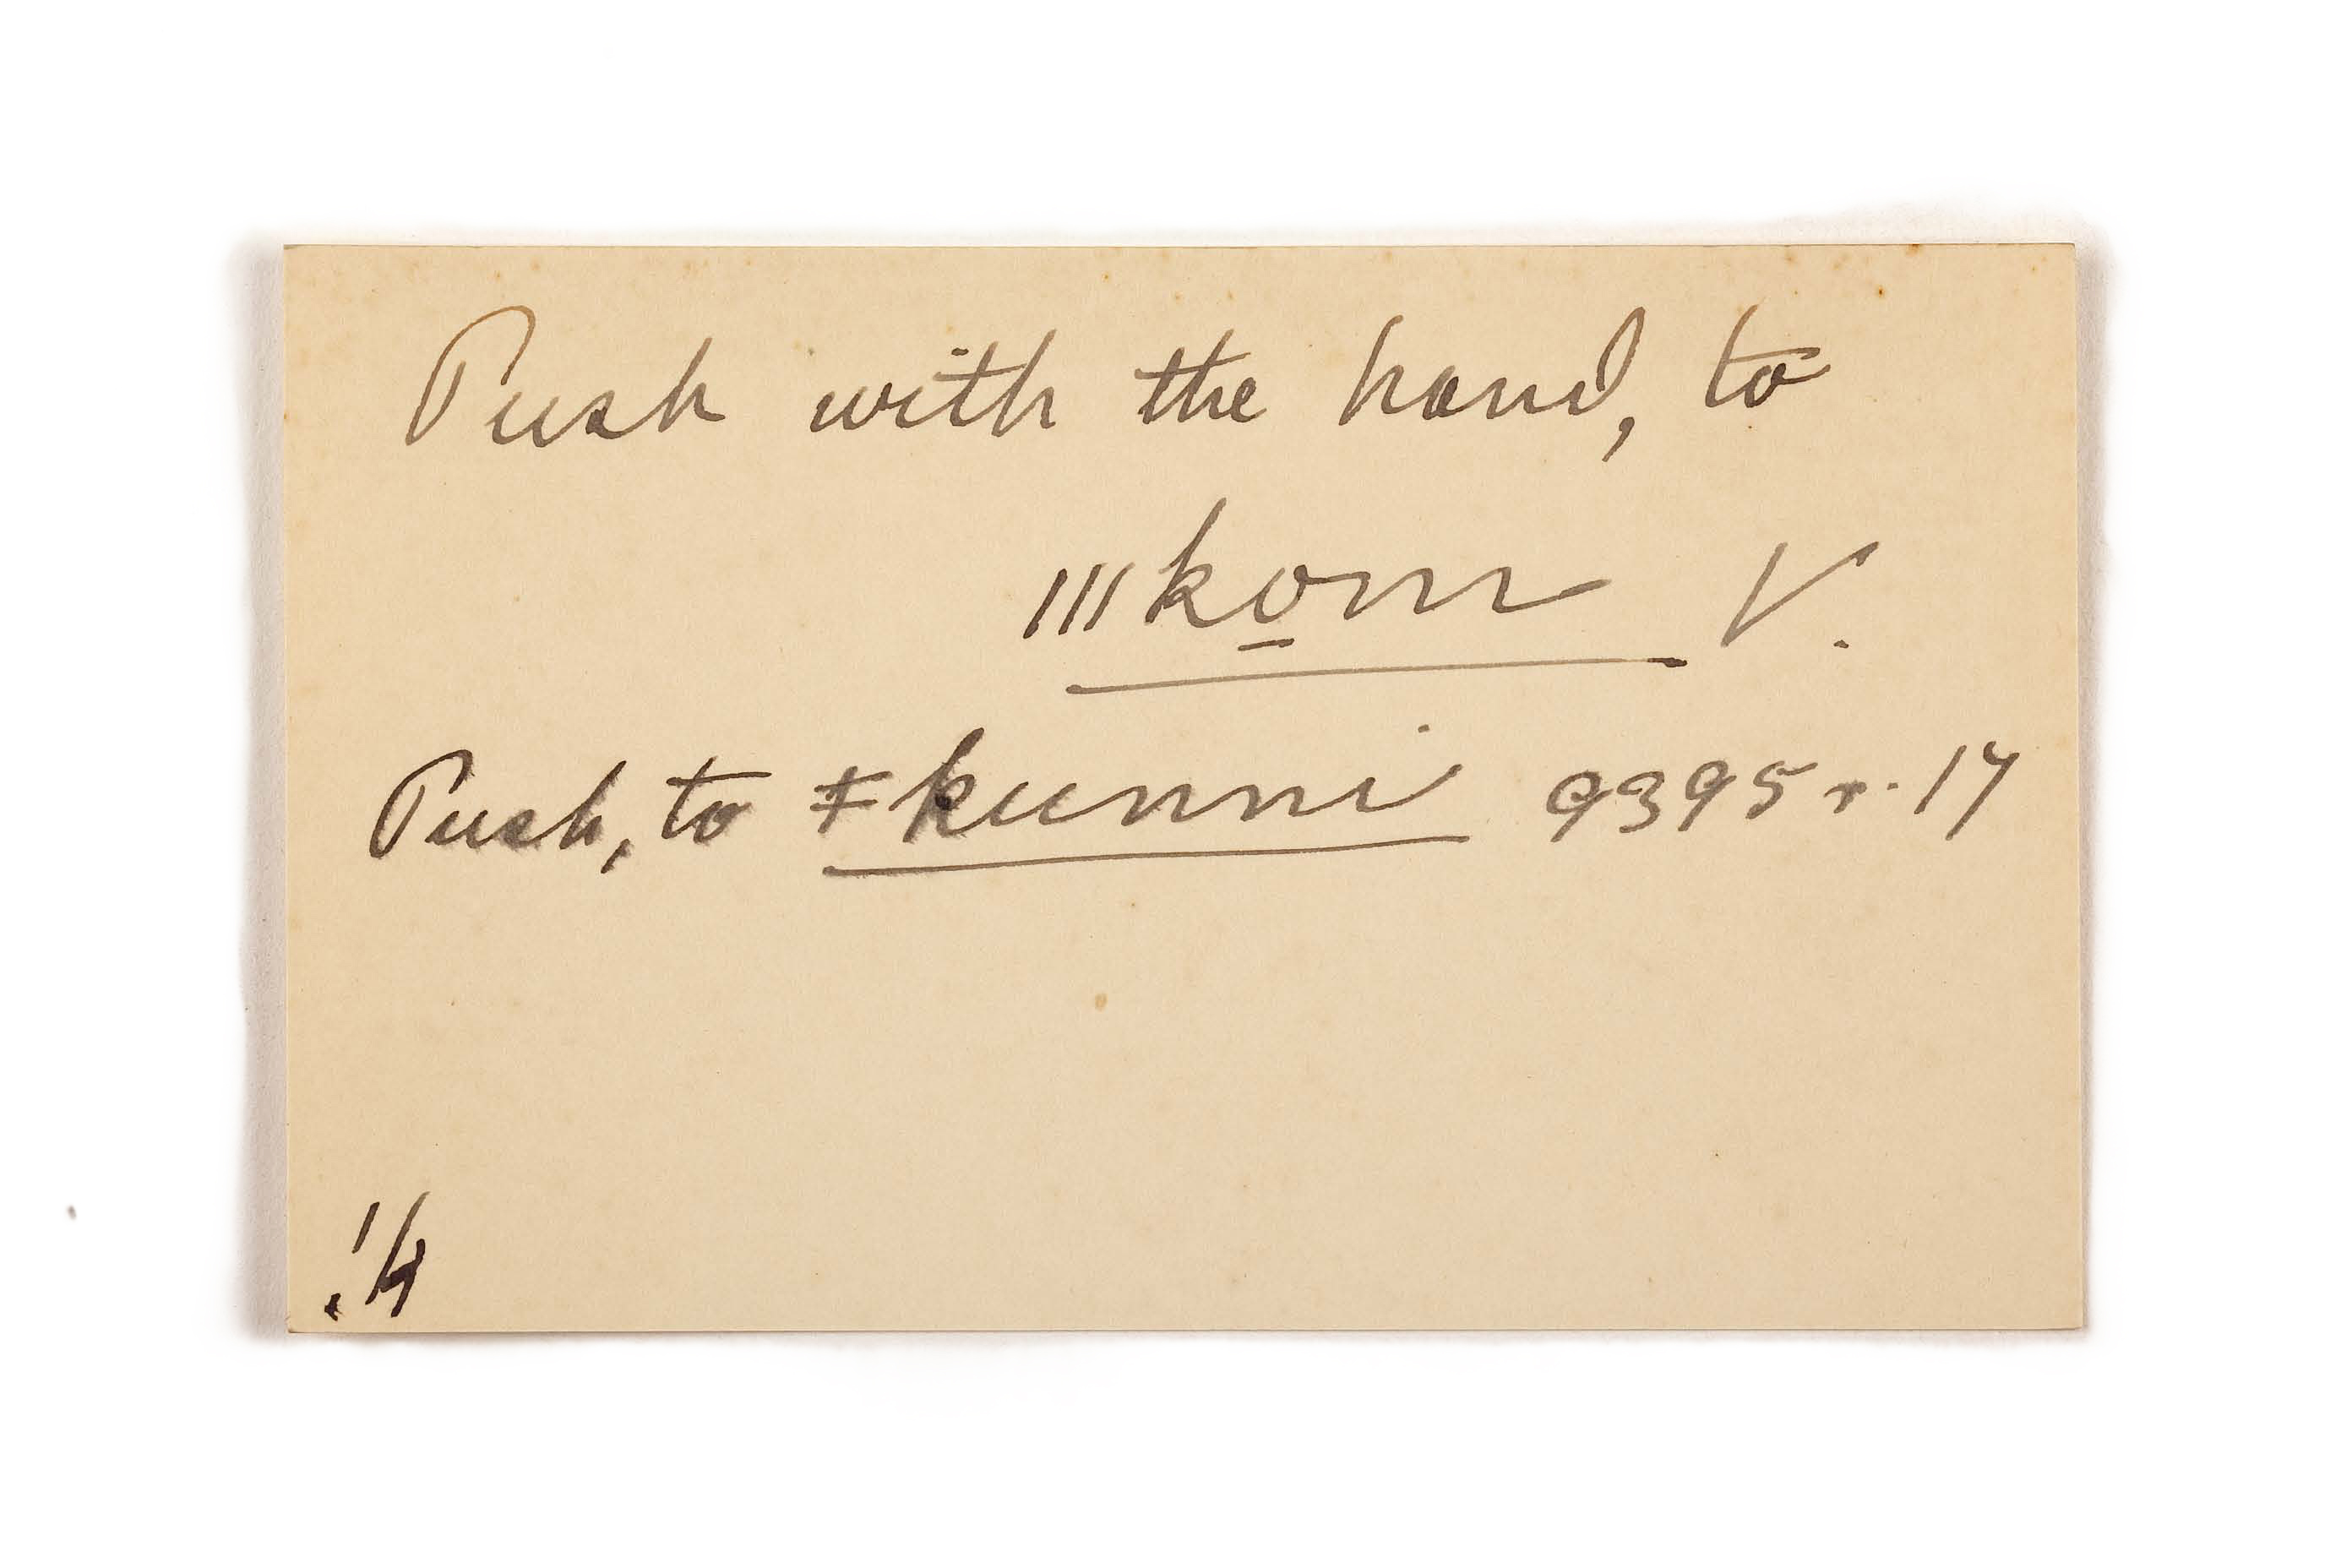 Push with the hand, to
|||ko̱m V.
Push, to ǂkunni 9395 r. 17
!k